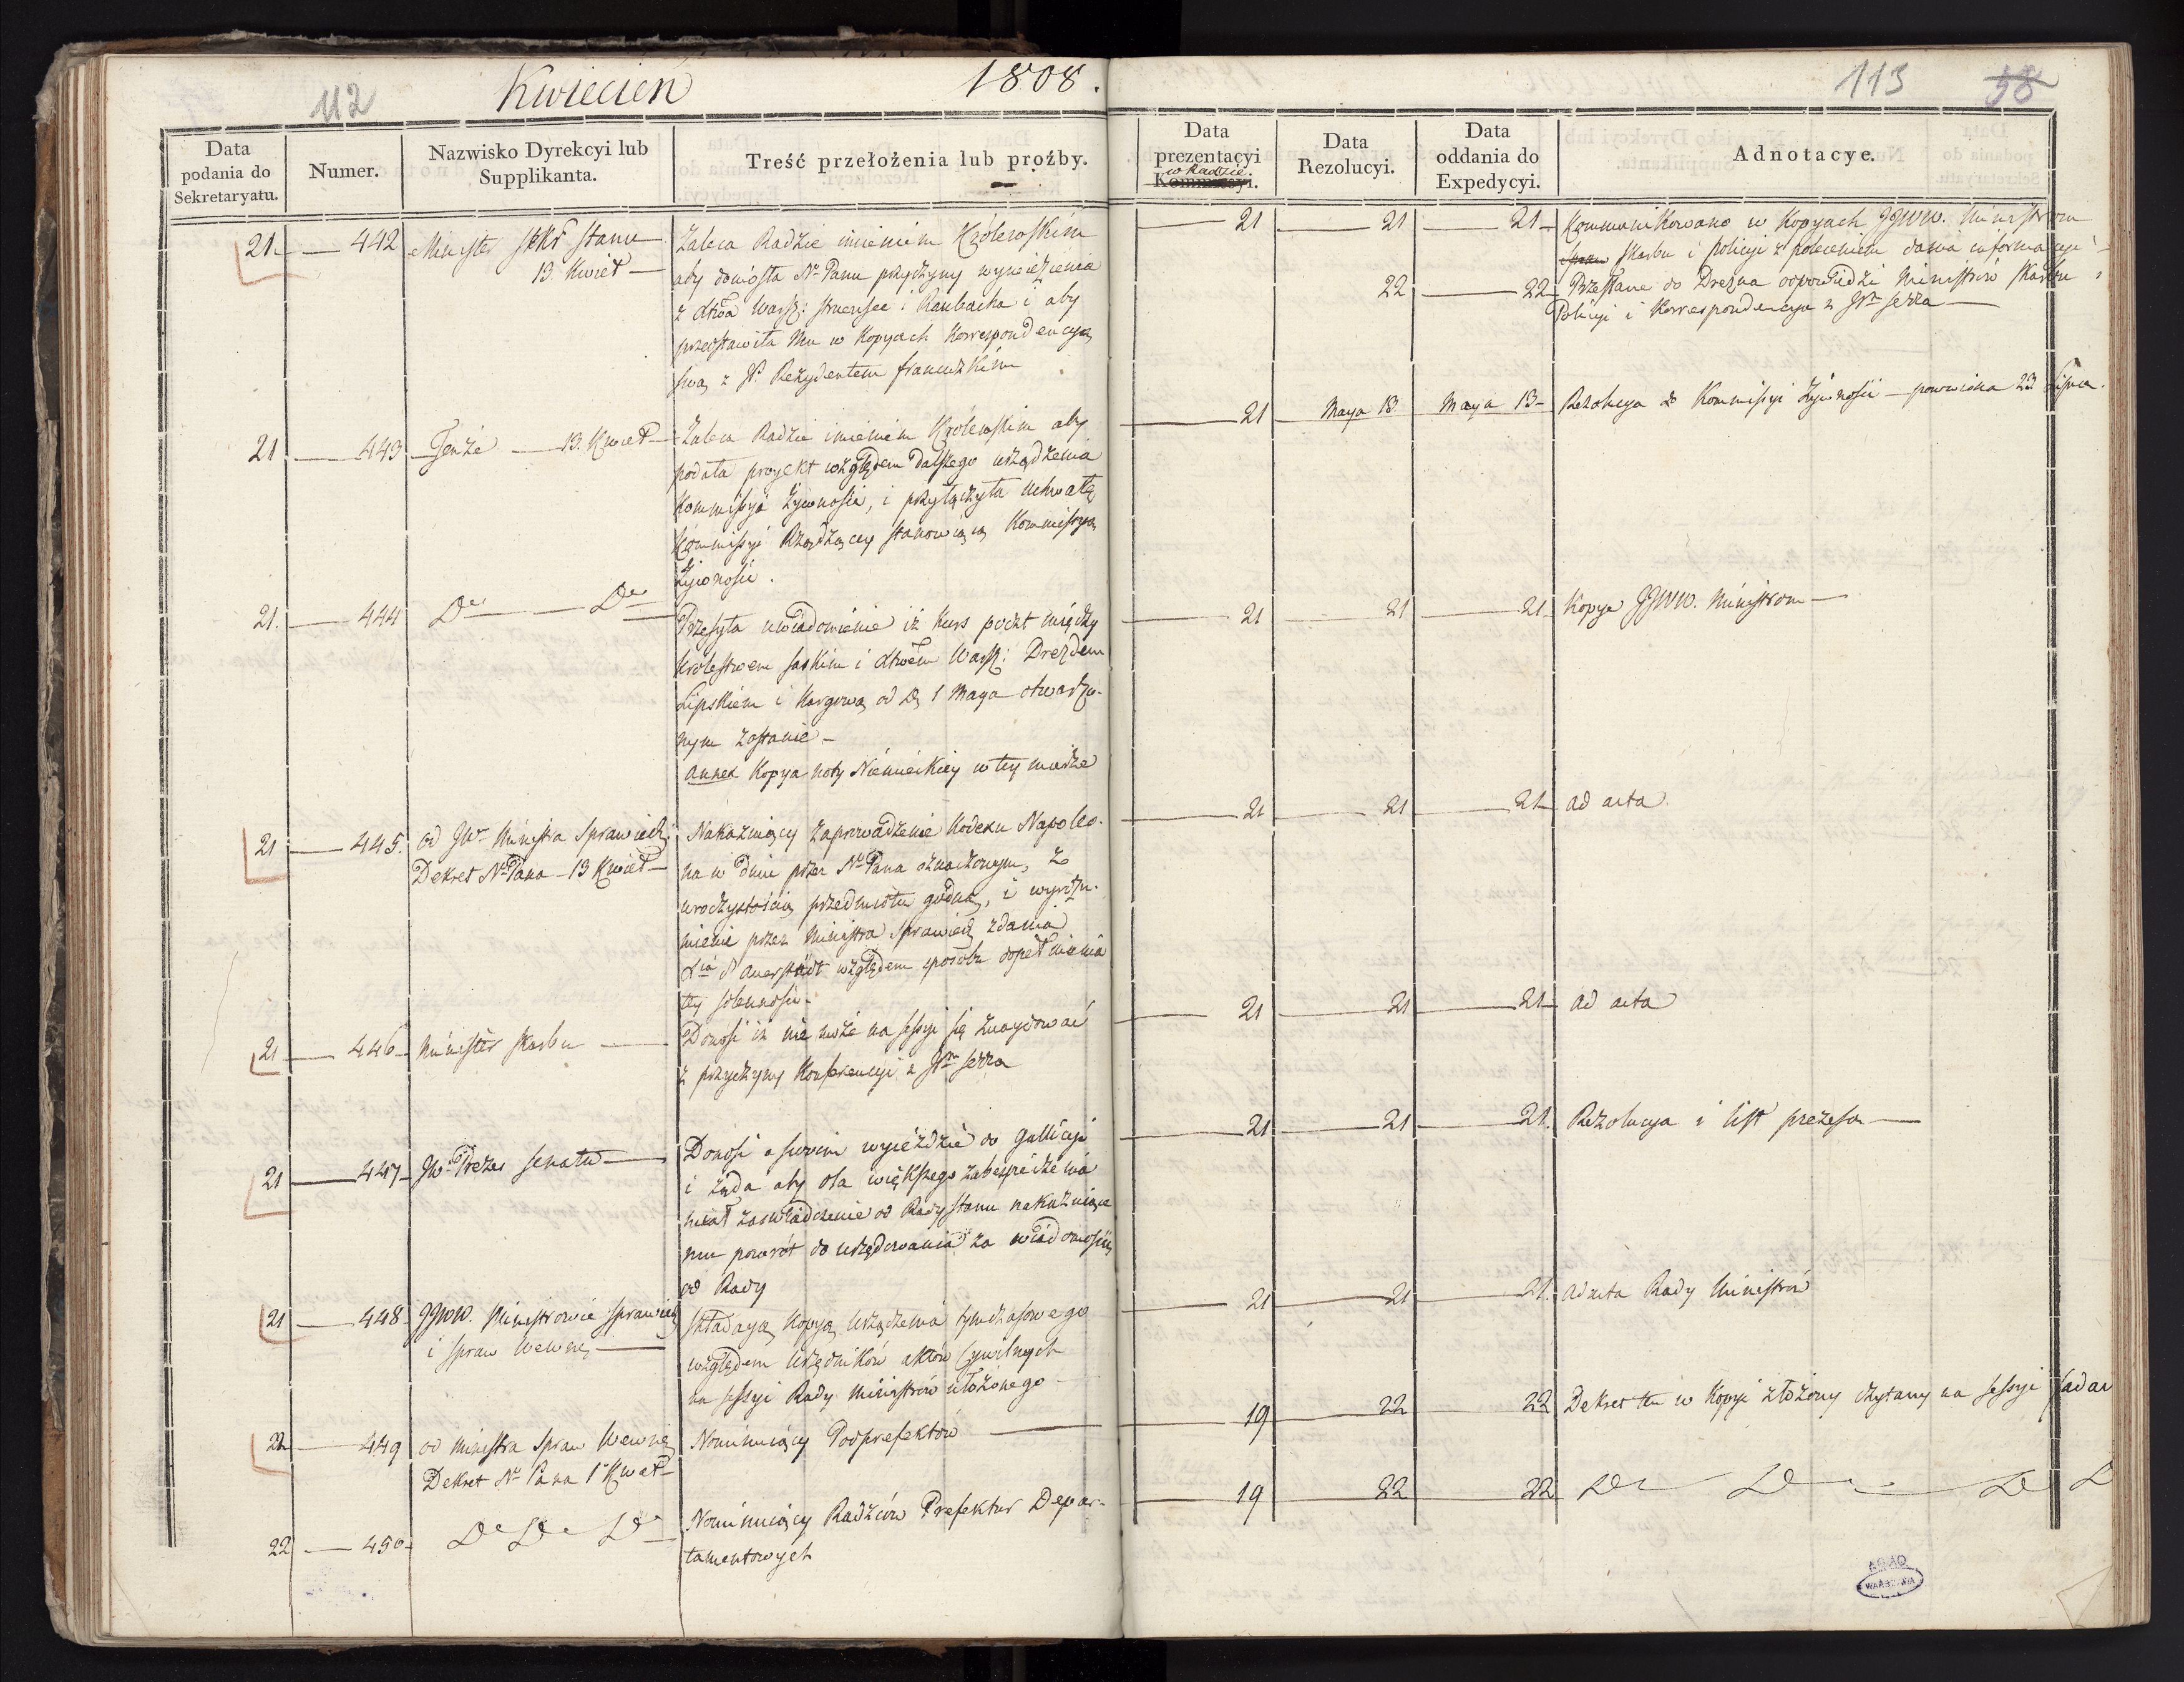 112
Kwiecień 1808.
Data podania do Sekretaryatu.
Numer.
Nazwisko Dyrekcyi lub Supplikanta.
Treść przełożenia lub proźby.
21 442 Minister Sekr Stanu
13. Kwiet
Zaleca Radzie imieniem Królewskim
aby doniosła Nu Panu przyczyny wywiezienia
z Xtwa Warsz: Struensee i Raubacha i aby
przedstawiła Mu w Kopyach Korrespondencyą
swą z JP. Rezydentem francuzkim
21 443 Tenże 13. Kwiet
Zaleca Radzie imieniem Królewskim aby
podała proyekt względem dalszego urządzenia
Kommissyi Żywności, i przyłączyła uchwałę
Kommissyi Rządzącey stanowiącą Kommissyą
Żywności.
21. 444 Do Do
Przesyła uwiadomienie iż kurs poczt między
Królestwem Saskim i Xtwem Warsz: Dreznem
Lipskiem i Kargową od D. 1 Maya otwarzo-
nym zostanie
Annex Kopya noty Niemieckiey w tey mierze
21 445. od JW Ministra Sprawiedl:
Dekret N Pana 13 Kwiet
Nakazuiący zaprowadzenie Kodexu Napoleo-
na w dniu przez N Pana oznaczonym, z
uroczystością przedmiotu godną, i wyrozu-
mienie przez Ministra Sprawied. zdania
Xcia d'Auerstädt względem sposobu dopełnienia
tey solenności
21 446 Minister Skarbu
Donosi iż nie może na sessyi się znaydować
z przyczyny Konferencyi z JPm Serra
21 447 JW. Prezes Senatu
Donosi o swoim wyieździe do Gallicyi
i żąda aby dla większego zabespieczenia
miał zaświadczenie od Rady Stanu nakazuiące
mu powrót do urzędowania za wiadomością
od Rady
21 448 JJWW. Ministrowie Sprawied.
i Spraw Wewnę.
Składaią Kopyą urządzenia tymczasowego
względem Urzędników aktów Cywilnych
na sessyi Rady Ministrów ułożonego
22 449 od Ministra Spraw Wewnę.
Dekret N Pana 1 Kwiet
Nominuiący Podprefektów
22 450 Do Do Do
Nominuiący Radźców Prefektur Depar-
tamentowych
113 58
Data prezentacyi w Radzie Kommissyi.
Data Rezolucyi.
Data oddania do Expedycyi.
Adnotacye.
21 21 21 Kommunikowano w Kopyach JJWW. Ministrom
Skarbu i Policyi z poleceniem dania informacyi
22 22 Przesłane do Drezna odpowiedzi Ministrów Skarbu i
Policyi i Korrespondencya z JPm Serra
21 Maya 13 Maya 13 Rezolucya do Kommissyi Żywności ponowiona 23 Lipca.
21 21 21 Kopye JJWW. Ministrom
21 21 21 ad acta
21 21 21 ad acta
21 21 21. Rezolucya i list prezesa
21 21 21. ad acta Rady Ministrów
19 22 22 Dekret ten w Kopyi złożony czytany na sessyi
19 22 22 Do Do Do D
AGAD
WARSZAWA